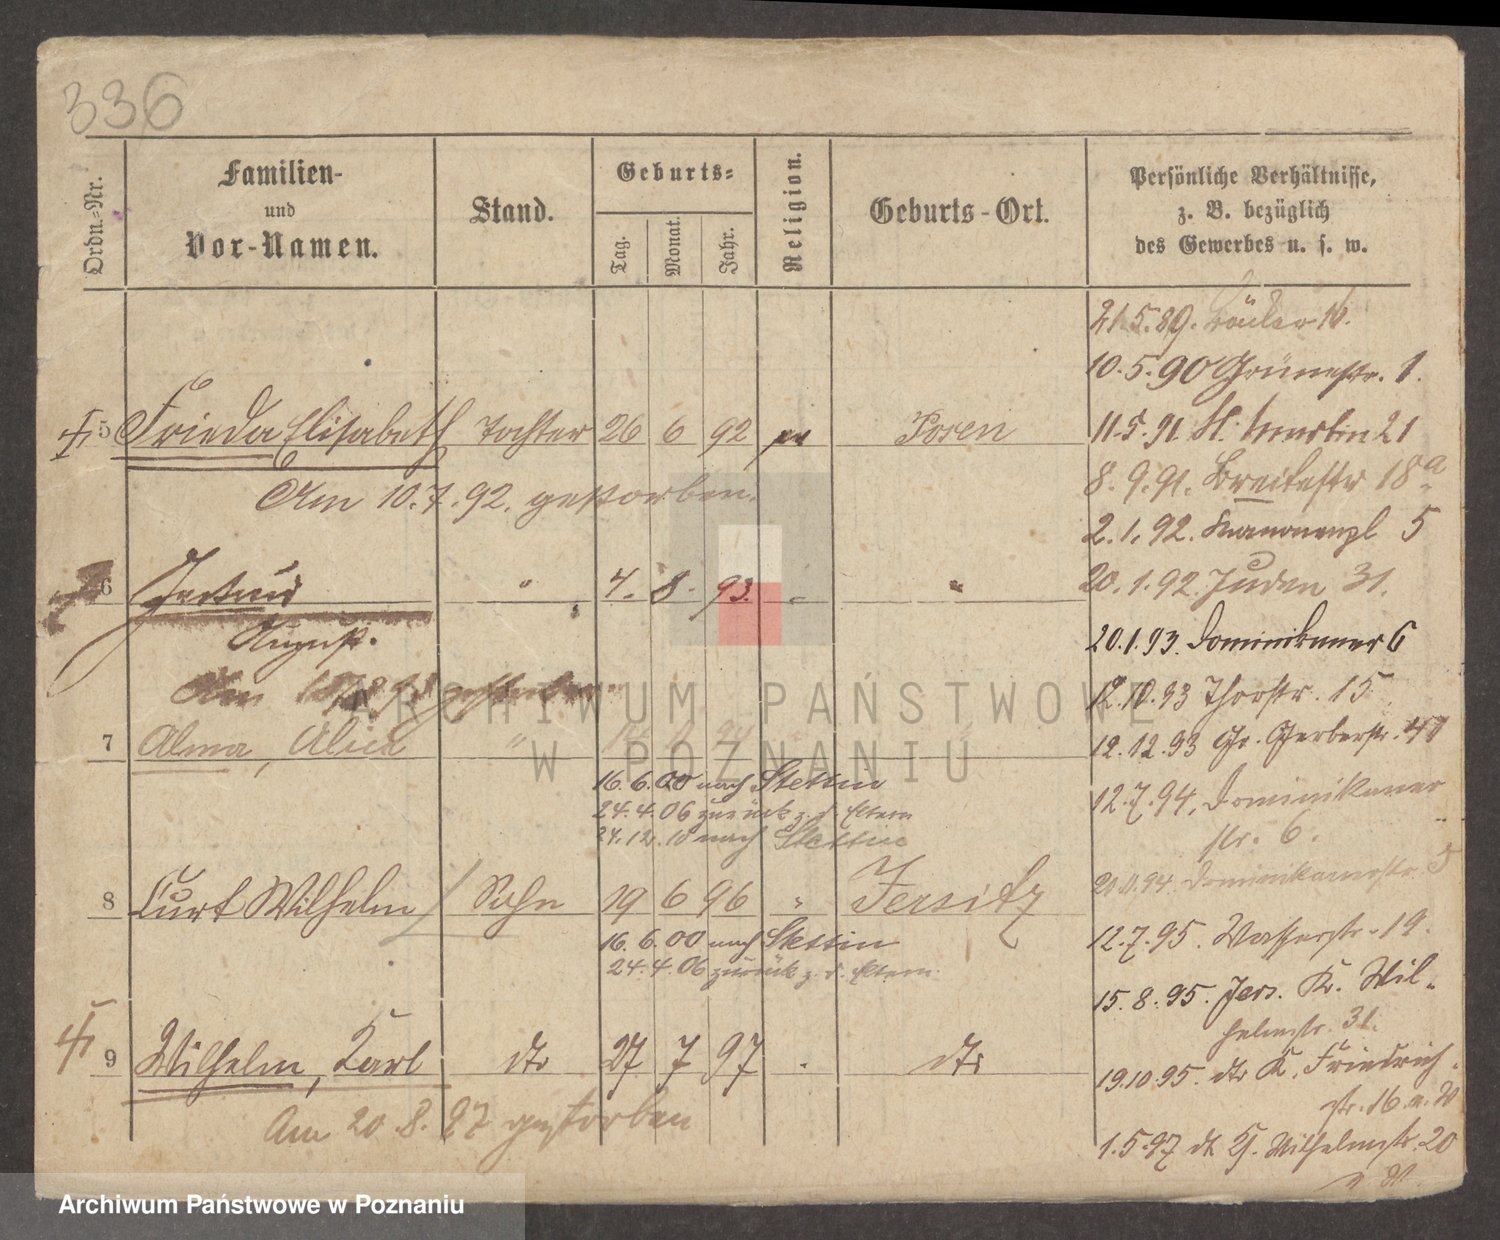 336
Ordn.-Nr.
Familien-
und
Vor-Namen.
Stand.
Geburts-
Tag.
Monat.
Jahr.
Religion.
Geburts-Ort.
Persönliche Verhältnisse,
z. B. bezüglich
des Gewerbes u. s. w.
5 Frieda Elisabeth Tochter 26 6 92 Posen
Am 10.7.92. gestorben.
6 Gertrud " 4. 8. 93. " "
August.
Am gestorben
7 Alma, Alice "
16. 6. 00 nach Stettin
24. 4. 06 zurück z. d. Eltern
27. 12. 10 nach Stettin
8 Curt Wilhelm Sohn 19 6 96 " Jersitz
16. 6. 00 nach Stettin
24. 4. 06 zurück z. d. Eltern.
9 Wilhelm, Karl dto 27 7 97 dto
Am 20. 8. 97 gestorben
21.5.89. 16.
10.5.90 Grünestr. 1.
11.5.91. St. Martin 21
8. 9. 91. Breitestr 18a
2. 1. 92. Kanonenpl 5
20. 1. 92. Juden 31.
20.1.93. Dominikaner 6
12.10.93 Thorstr. 15
12.12.93 Gr. Gerberstr. 41
12.7.94. Dominikaner
str. 6.
94. Dominikanerstr. 5
12.7.95. Wasserstr. 19.
15.8.95. Jers. K. Wil-
helmstr. 31.
19.10.95. dto K. Friedrich-
str. 16
1.5.97 dto K. Wilhelmstr. 20
ARCHIWUM PAŃSTWOWE
W POZNANIU
Archiwum Państwowe w Poznaniu